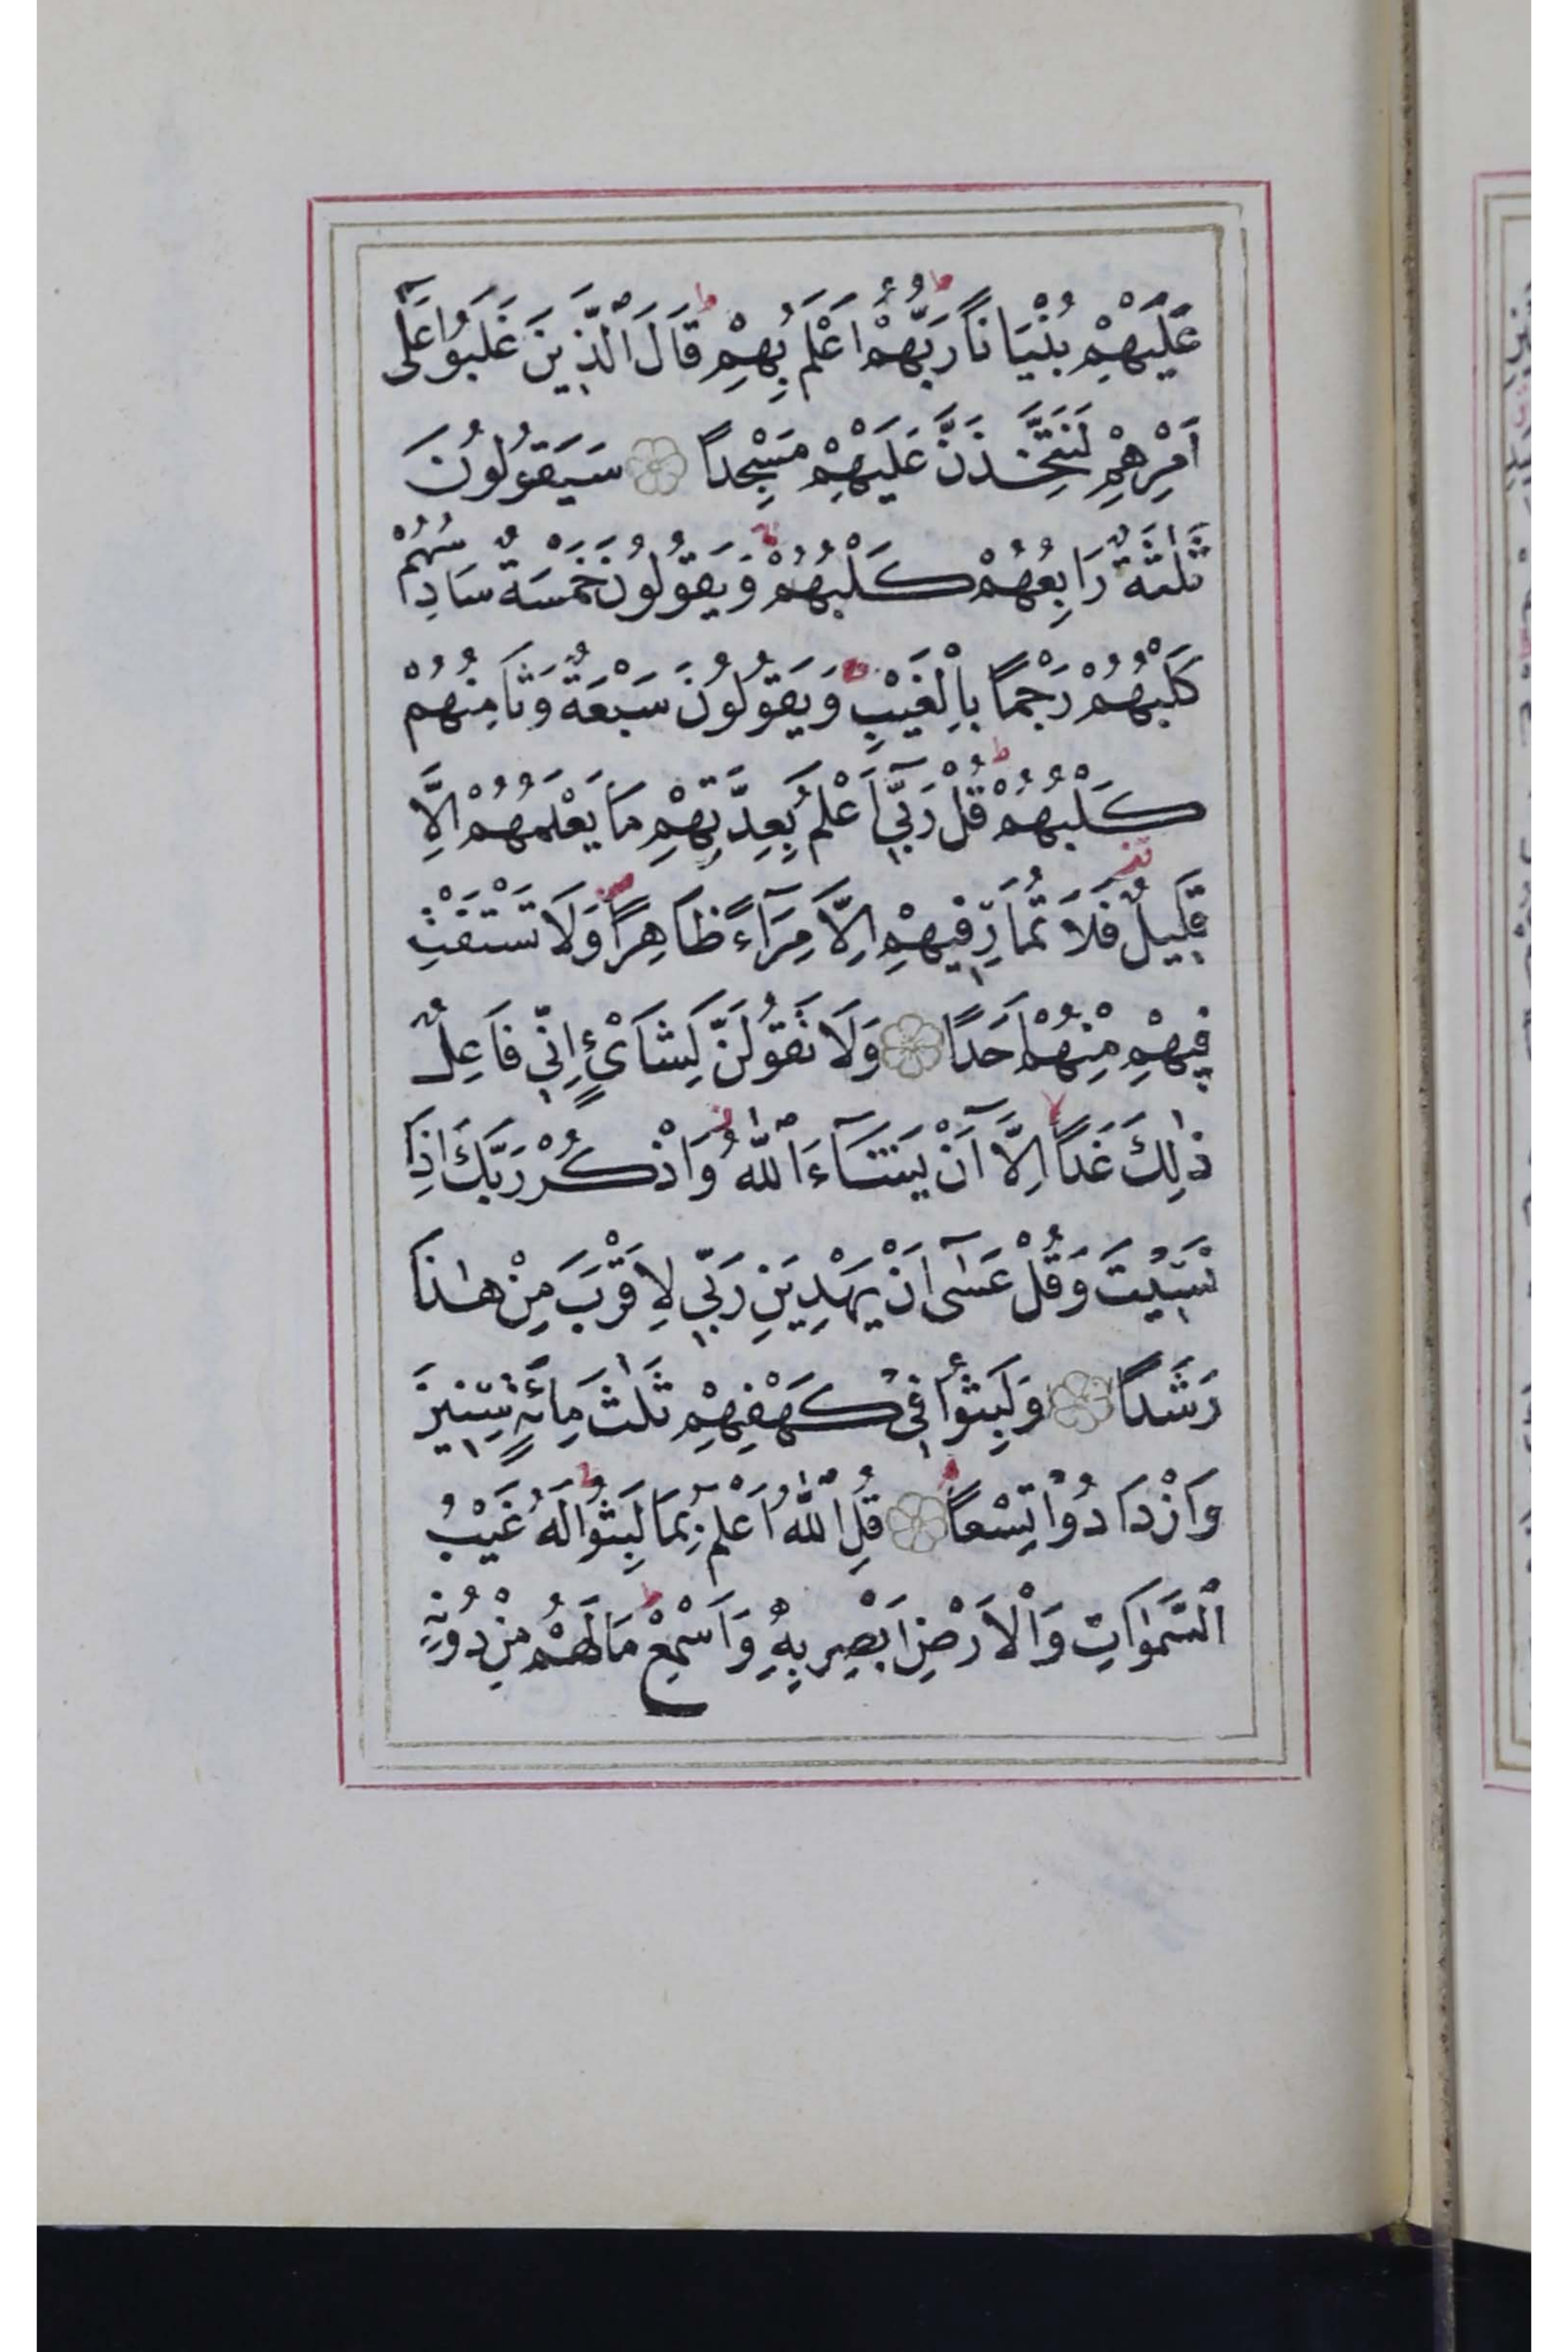 عَلَيْهِمْ بُنْيَانًا رَبُّهُمْ اَعْلَمُ بِهِمْ قَالَ الَّذِينَ غَلَبُوا عَلٰٓى
اَمْرِهِمْ لَنَتَّخِذَنَّ عَلَيْهِمْ مَسْجِدًا سَيَقُولُونَ
ثَلٰثَةٌ رَابِعُهُمْ كَلْبُهُمْ وَيَقُولُونَ خَمْسَةٌ سَادِسُهُمْ
كَلْبُهُمْ رَجْمًا بِالْغَيْبِ وَيَقُولُونَ سَبْعَةٌ وَثَامِنُهُمْ
كَلْبُهُمْ قُلْ رَبِّٓى اَعْلَمُ بِعِدَّتِهِمْ مَا يَعْلَمُهُمْ اِلَّا
قَلِيلٌ فَلَا تُمَارِ فِيهِمْ اِلَّا مِرَآءً ظَاهِرًا وَلَا تَسْتَفْتِ
فِيهِمْ مِنْهُمْ اَحَدًا وَلَا تَقُولَنَّ لِشَاىْءٍ اِنِّى فَاعِلٌ
ذٰلِكَ غَدًا اِلَّآ اَنْ يَشَآءَ اللّٰهُ وَاذْكُرْ رَبَّكَ اِذَا
نَسِيتَ وَقُلْ عَسٰٓى اَنْ يَهْدِيَنِ رَبِّى لِاَقْرَبَ مِنْ هٰذَا
رَشَدًا وَلَبِثُوا فِى كَهْفِهِمْ ثَلٰثَ مِائَةٍ سِنِينَ
وَازْدَادُوا تِسْعًا قُلِ اللّٰهُ اَعْلَمُ بِمَا لَبِثُوا لَهُ غَيْبُ
السَّمٰوَاتِ وَالْاَرْضِ اَبْصِرْ بِهِ وَاَسْمِعْ مَا لَهُمْ مِنْ دُونِهِ